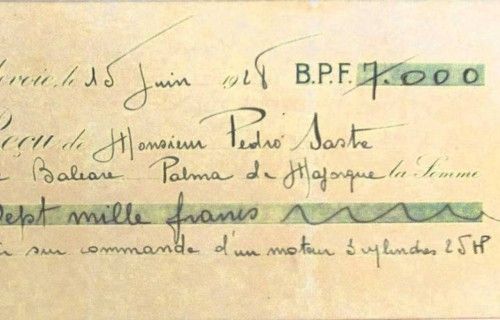 le 15 Juin 1928 B.P.F. 7.000
Reçu de Monsieur Pedro Sastre
Baleare Palma de Majorque la Somme
Sept mille francs
sur commande d'un moteur 3 cylindres 25 HP